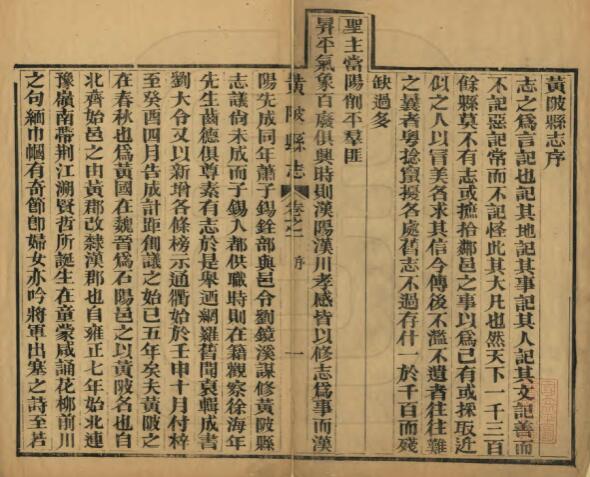 黃陂縣志序
志之爲言記也記其地記其事記其人記其文記善而
不記惡記常而不記怪此其大凡也然天下一千三百
餘縣莫不有志或摭拾鄰邑之事以爲己有或採取近
似之人以冒美名求其信今傳後不濫不遺者往往難
之義者粵捻竄擾各處舊志不過存什一於千百而殘
缺過多
聖主當陽削平羣匪
昇平氣象百廢俱興時則漢陽漢川孝感皆以修志爲事而漢
黃陂縣志 卷之一 序 一
陽先成同年蕭子錫銓部與邑令劉鏡溪謀修黃陂縣
志議尚未成而子錫入都供職時則在籍觀察徐海年
先生齒德俱尊素有志於是舉迺網羅舊聞裒輯成書
劉大令又以新增各條榜示通衢始於壬申十月付梓
至癸酉四月告成計距創議之始已五年矣夫黃陂之
在春秋也爲黃國在魏晉爲石陽邑之以黃陂名也自
北齊始邑之由黃郡改隸漢郡也自雍正七年始北連
豫嶺南帶荆江溯賢哲所誕生在童蒙咸誦花柳前川
之句緬巾幗有奇節卽婦女亦吟將軍出塞之詩至若